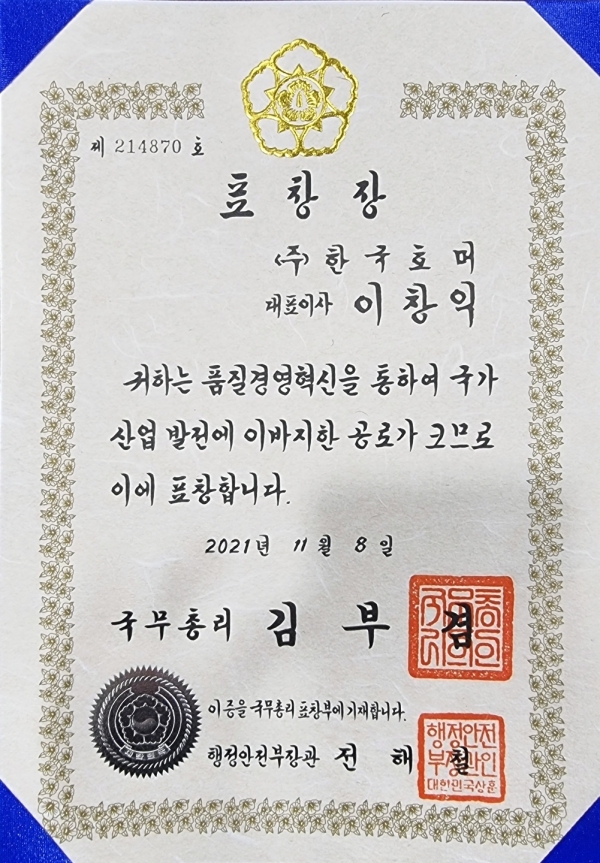 제 214870 호
표창장
(주) 한국호머
대표이사 이창익
귀하는 품질경영혁신을 통하여 국가
산업 발전에 이바지한 공로가 크므로
이에 표창합니다.
2021년 11월 8일
국무총리 김부겸
이 증을 국무총리 표창부에 기재합니다.
행정안전부장관 전해철
행정안전
부장관인
대한민국상훈